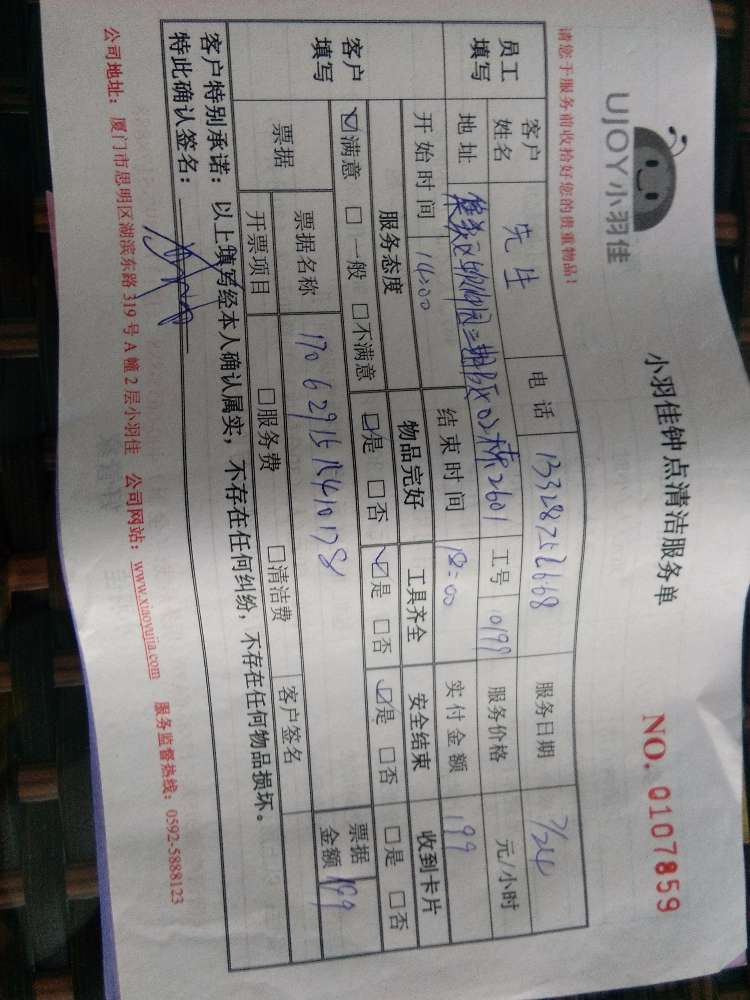 UJOY小羽佳
小羽佳钟点清洁服务单
NO. 0107859
请您于服务前收拾好您的贵重物品!
员工填写
客户姓名 先生 电话 13328752668 服务日期 7/24
地址 二期B区02梯2601 工号 0199 服务价格 元/小时
开始时间 14:00 结束时间 18:00 实付金额 199
客户填写
服务态度 物品完好 工具齐全 安全结束 收到卡片
☑满意 □一般 □不满意 ☑是 □否 ☑是 □否 ☑是 □否 □是 □否
票据 票据名称 1706291515410178 票据金额 199
开票项目 □服务费 □清洁费 客户签名
客户特别承诺:以上填写经本人确认属实,不存在任何纠纷,不存在任何物品损坏。
特此确认签名:
公司地址:厦门市思明区湖滨东路319号A幢2层小羽佳 公司网站:www.xiaoyujia.com 服务监督热线:0592-5888123